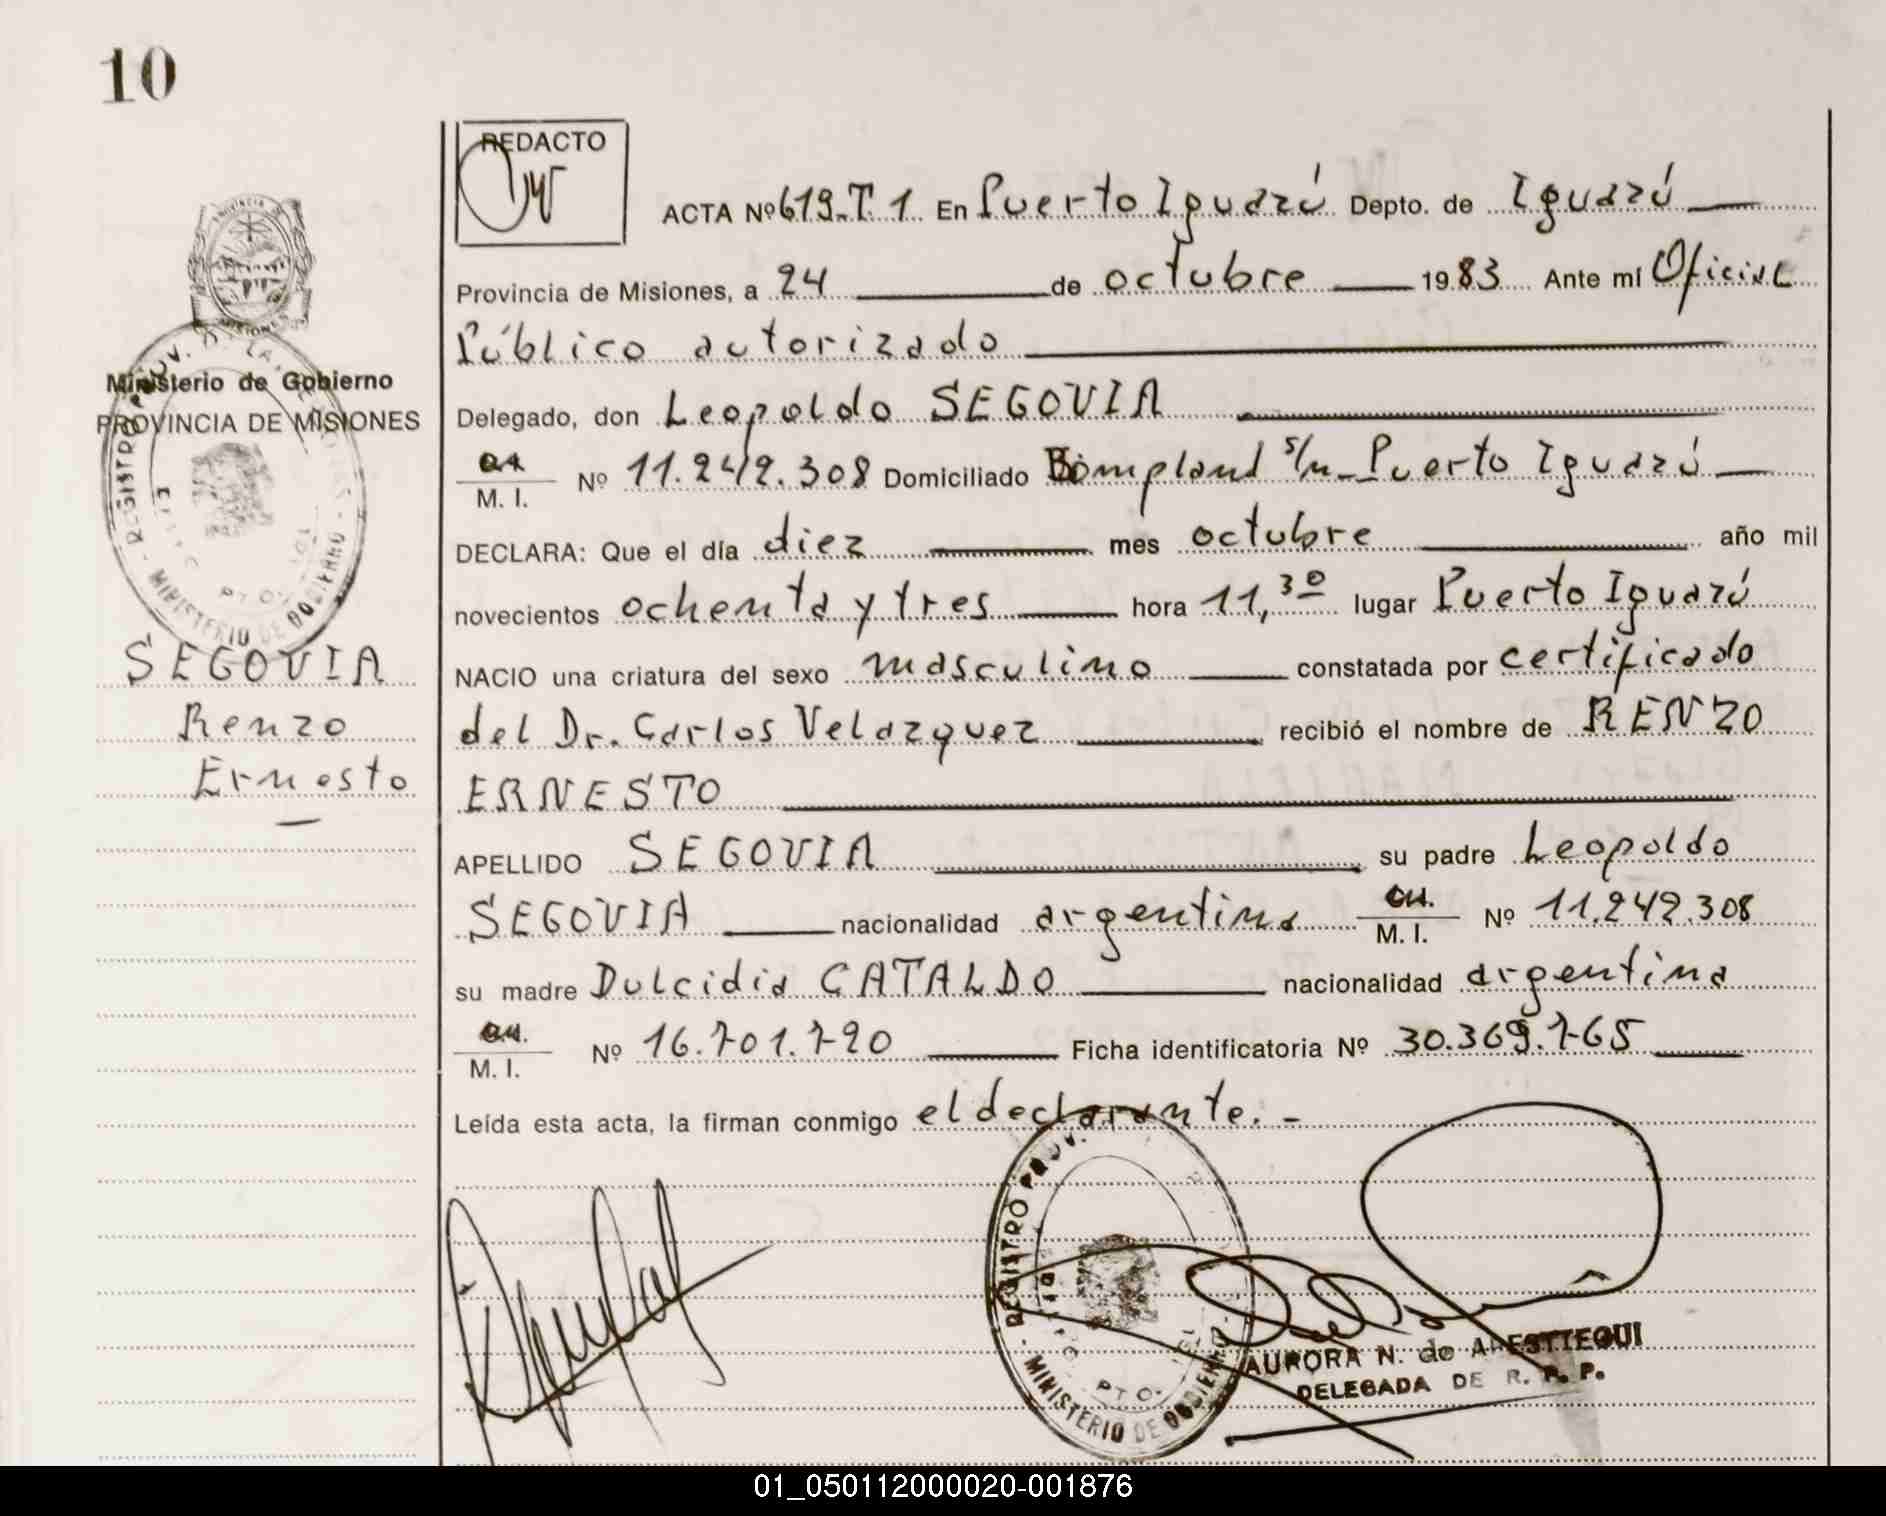 10
REDACTO
ACTA Nº 619-T.1. En Puerto Iguazú Depto. de Iguazú
Provincia de Misiones, a 24 de octubre 1983 Ante mí Oficial
Público autorizado
Ministerio de Gobierno
PROVINCIA DE MISIONES
Delegado, don Leopoldo SEGOVIA
M. I. Nº 11.242.308 Domiciliado Bompland s/n - Puerto Iguazú
DECLARA: Que el día diez mes octubre año mil
novecientos ochenta y tres hora 11,30 lugar Puerto Iguazú
SEGOVIA
Renzo
Ernesto
NACIO una criatura del sexo masculino constatada por certificado
del Dr. Carlos Velazquez recibió el nombre de RENZO
ERNESTO
APELLIDO SEGOVIA su padre Leopoldo
SEGOVIA nacionalidad argentina M. I. Nº 11.242.308
su madre Dulcidia CATALDO nacionalidad argentina
M. I. Nº 16.701.720 Ficha identificatoria Nº 30.369.765
Leída esta acta, la firman conmigo el declarante. -
REGISTRO PROV.
MINISTERIO DE GOBIERNO
PTO.
AURORA N. de
DELEGADA DE R. P. P.
01_050112000020-001876